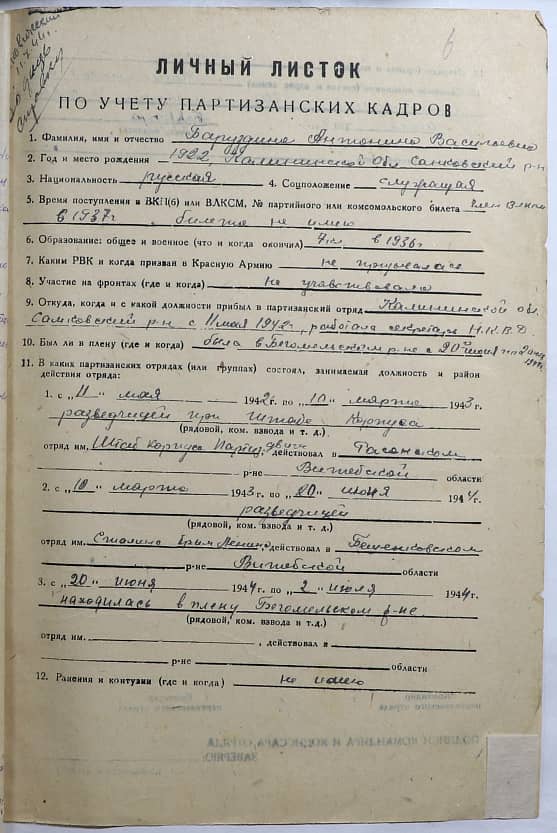 6
ЛИЧНЫЙ ЛИСТОК
ПО УЧЕТУ ПАРТИЗАНСКИХ КАДРОВ
1. Фамилия, имя и отчество Антонина Васильевна
2. Год и место рождения 1922, Калининской обл. Сонковский р-н
3. Национальность русская 4. Соцположение служащая
5. Время поступления в ВКП(б) или ВЛКСМ, № партийного или комсомольского билета
в 1937г. билета не имею
6. Образование: общее и военное (что и когда окончил) 7 кл. в 1936г
7. Каким РВК и когда призван в Красную Армию не призывалась
8. Участие на фронтах (где и когда) не участвовала
9. Откуда, когда и с какой должности прибыл в партизанский отряд Калининской обл.
Сонковский р-н с 11 мая 1942г, работала секретарь Н.К.В.Д.
10. Был ли в плену (где и когда) была в Бегомельском р-не с 20 июня по 2 июля
1944г
11. В каких партизанских отрядах (или группах) состоял, занимаемая должность и район
действия отряда:
1. с „11" мая 1942г. по „10" марта 1943г.
разведчицей при Штабе Корпуса
(рядовой, ком. взвода и т. д.)
отряд им. Штаб корпуса Партиз. движ. действовал в Россонском
р-не Витебской области
2. с „10" марта 1943г. по „20" июня 1944г.
разведчицей
(рядовой, ком. взвода и т. д.)
отряд им. Сталина бриг. Ленина, действовал в Бешенковском
р-не Витебской области
3. с „20" июня 1944г. по „2" июля 1944г.
находилась в плену Бегомельском р-не
(рядовой, ком. взвода и т. д.)
отряд им. , действовал в
р-не области
12. Ранения и контузии (где и когда) не имею